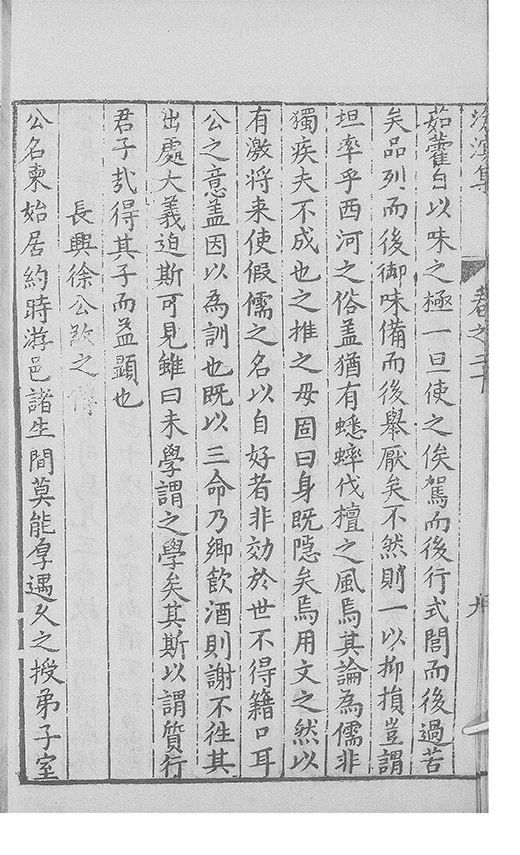 滄溟集 卷之二十
茹藿自以味之極一旦使之俟駕而後行式閭而後過苦
矣品列而後御味備而後舉厭矣不然則一以抑損豈謂
坦率乎西河之俗盖猶有蟋蟀伐檀之風焉其論為儒非
獨疾夫不成也之推之母固曰身既隠矣焉用文之然以
有激将来使假儒之名以自好者非効於世不得籍口耳
公之意盖因以為訓也既以三命乃鄉飲酒則謝不徃其
出處大義迫斯可見雖曰未學謂之學矣其斯以謂質行
君子㢤得其子而益顯也
長興徐公敬之傳
公名柬始居約時游邑諸生間莫能厚遇久之授弟子室